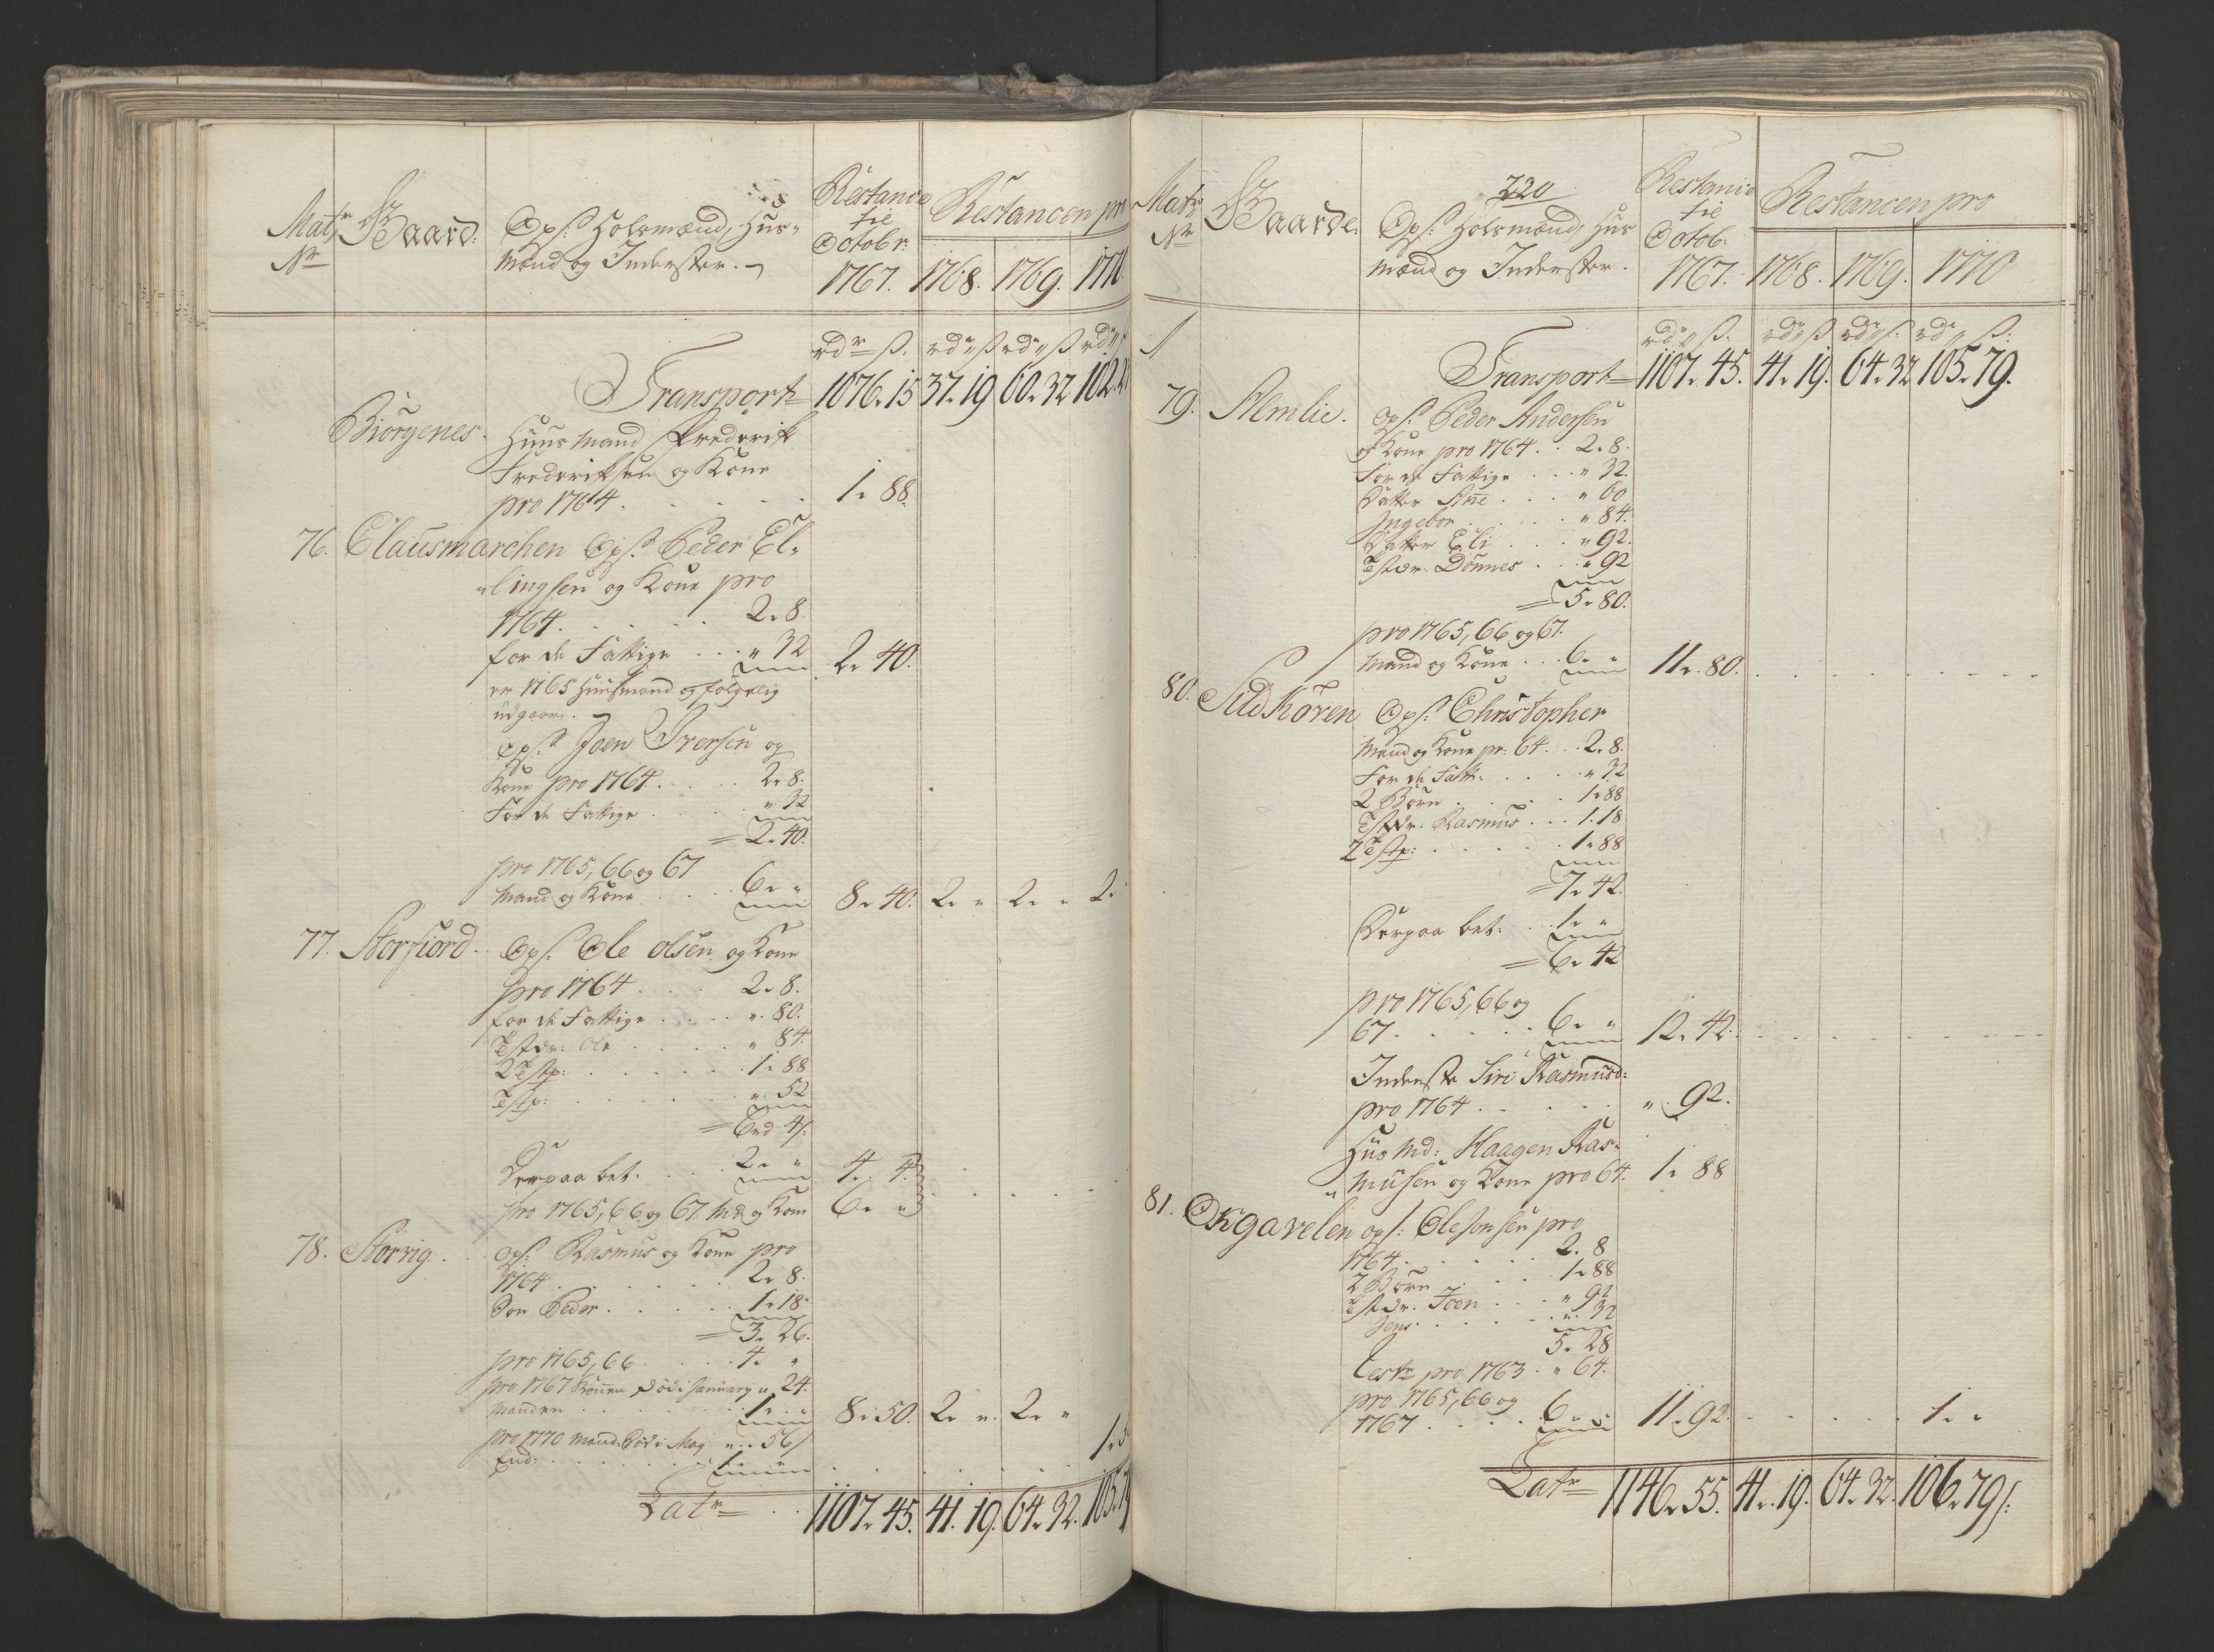 Matr Nr
Gaard:
Ops: Holsmænd, Huus-
mænd og Inderster.
Restance til Octobr: 1767.
Restancen pro
1768. 1769. 1770
rdr ß. rd ß rd ß rd
Transport 1076. 15 37. 19 60. 32 102.
Biörgenes. Huusmand Frederik
Frederiksen og Kone
pro 1764 . . . . . 1. 88.
76. Clausmarchen Ops: Peder El-
lingsen og Kone pro
1764. . . . . . 2. 8.
for de Fattige . . . " 32 2. 40.
er 1765 Huusmand og følgelig
udgaar.
ops: Joen Iversen og
Kone pro 1764. . . . 2. 8.
For de Fattige . . . . " 32
= 2. 40.
pro 1765, 66 og 67
Mand og Kone . . . 6. " 8. 40. 2. " 2. " 2.
77. Storfiord. Ops. Ole Olsen og Kone
pro 1764 . . . 2. 8.
for de Fattige . . . . ". 80.
Tstdr: Ole . . . . " 84.
2 Tstp: . . . . . . 1. 88
Tstp: . . . . . . ". 52
= 6rd 4ß:
Derpaa bet. . . . 2. " 4. 4.
pro 1765, 66 og 67 Md og Kone 6. "
78. Storvig. . . ops: Rasmus og Kone pro
1764 . . . . . . 2. 8.
Søn Peder . . . . . 1. 18.
= 3. 26.
pro 1765, 66. . . . . 4. "
pro 1767 Konen død i January " 24.
Manden . . . . . . . 1. " 8. 50. 2. ". 2. "
pro 1770 Mand. død i May " . 56
End: . . . . . . . 1.
Latr . . 1107. 45. 41. 19. 64. 32. 105. 7
Matr Nr
Gaarde:
220
Ops: Holsmænd, Huus
mænd og Inderster.
Restance til Octob: 1767.
Restancen pro
1768. 1769. 1770
rd ß. rd ß rd ß: rd ß:
Transport 1107. 45. 41. 19. 64. 32 105. 79.
79. Almlie. ops: Peder Andersen
og Kone pro 1764. . . 2. 8.
For de Fattige . . . " 32.
Datter Ane . . . " 60
Ingebor . . . . . " 84.
Datter Eli . . . " 92.
Tstdr. Dönnes . . . " 92
= 5. 80.
pro 1765, 66 og 67.
Mand og Kone . . . 6. " 11. 80. . . . . . . .
80. Sildkören Ops: Christopher
Mand og Kone pr: 64. . . 2. 8.
For de Fatt: . . . . . " 32
2 Börn . . . . . 1. 88
Tstdr: Rasmus . . . 1. 18
2 Tstp: . . . . . . 1. 88
= 7. 42.
Derpaa bet: . . 1. "
= 6. 42
pro 1765, 66 og
67 . . . . . . 6. " 12. 42. . . . . . . .
Inderste Siri Rasmusd:
pro 1764 . . . . . ". 92.
Huusmd: Haagen Ras-
musen og Kone pro 64. 1. 88
81. Okgavelen ops: Ole Jonsen pro
1764 . . . . . . 2. 8
2 Börn . . . . . 1. 88
Tstdr. Joen . . . " 92
Jens . . . . . . " 32
5. 28
Restr pro 1763. " 64.
pro 1765, 66 og
1767 . . . . . 6. " 11. 92. . . . . . 1. "
Latr 1146. 55. 41. 19. 64. 32. 106. 79ß: